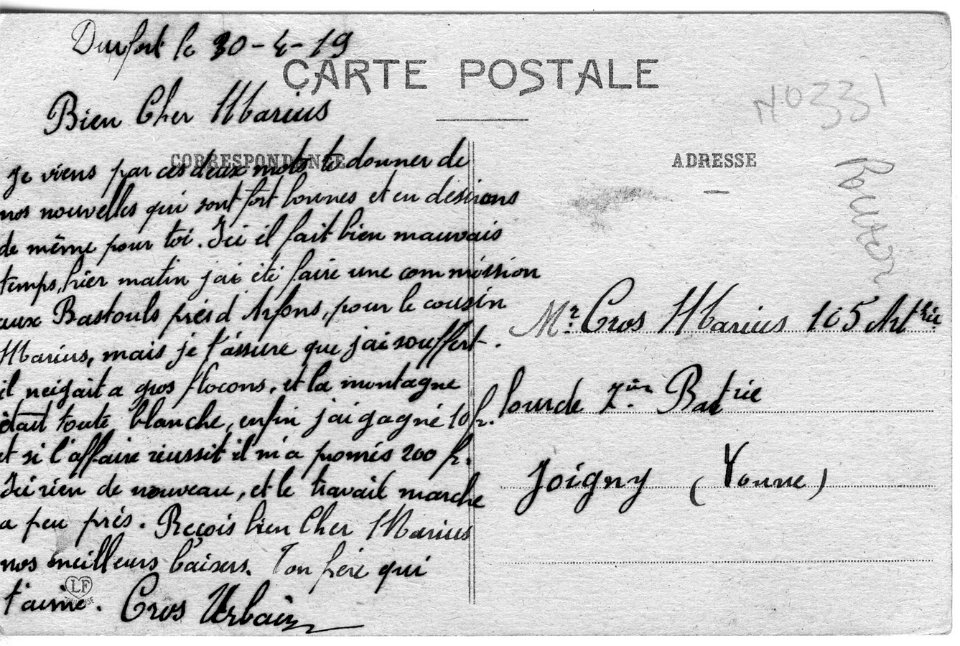 Durfort le 30-4-19
CARTE POSTALE
N° 331
Bien Cher Marius
CORRESPONDANCE
ADRESSE
je viens par ces deux mots, te donner de
nos nouvelles qui sont fort bonnes et en désirons
de même pour toi. Ici il fait bien mauvais
temps, hier matin jai été faire une commission
aux Bastouls près d Arfons, pour le cousin
Marius, mais je t'assure que jai souffert.
il neigait a gros flocons, et la montagne
était toute blanche, enfin jai gagné 10 f.
et si l'affaire réussit il m'a promis 200 f.
Ici rien de nouveau, et le travail marche
a peu prés. Reçois bien Cher Marius
nos meilleurs baisers. Ton père qui
t'aime. Cros Urbain
LF
Mr. Cros Marius 105 Artrie
lourde 7ème Batrie
Joigny (Yonne)